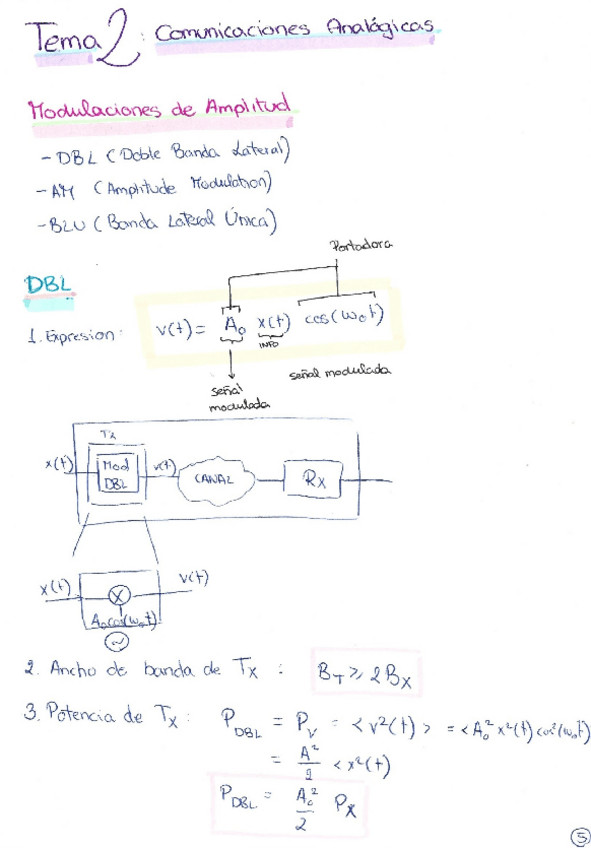 Tema 2: Comunicaciones Analógicas.
Modulaciones de Amplitud
- DBL (Doble Banda Lateral)
- AM (Amplitude Modulation)
- BLU (Banda Lateral Única)
Portadora
DBL
1. Expresion: v(t) = A₀ x(t) cos(ω₀t)
INFO
señal modulada
señal modulada
Tx
x(t) Mod DBL v(t) CANAL Rx
x(t) X v(t)
A₀cos(ω₀t)
~
2. Ancho de banda de Tx : B_T ≥ 2B_X
3. Potencia de Tx : P_DBL = P_V = <v²(t)> = <A₀² x²(t) cos²(ω₀t)
= A²/2 <x²(t)
P_DBL = A₀²/2 P_X
5